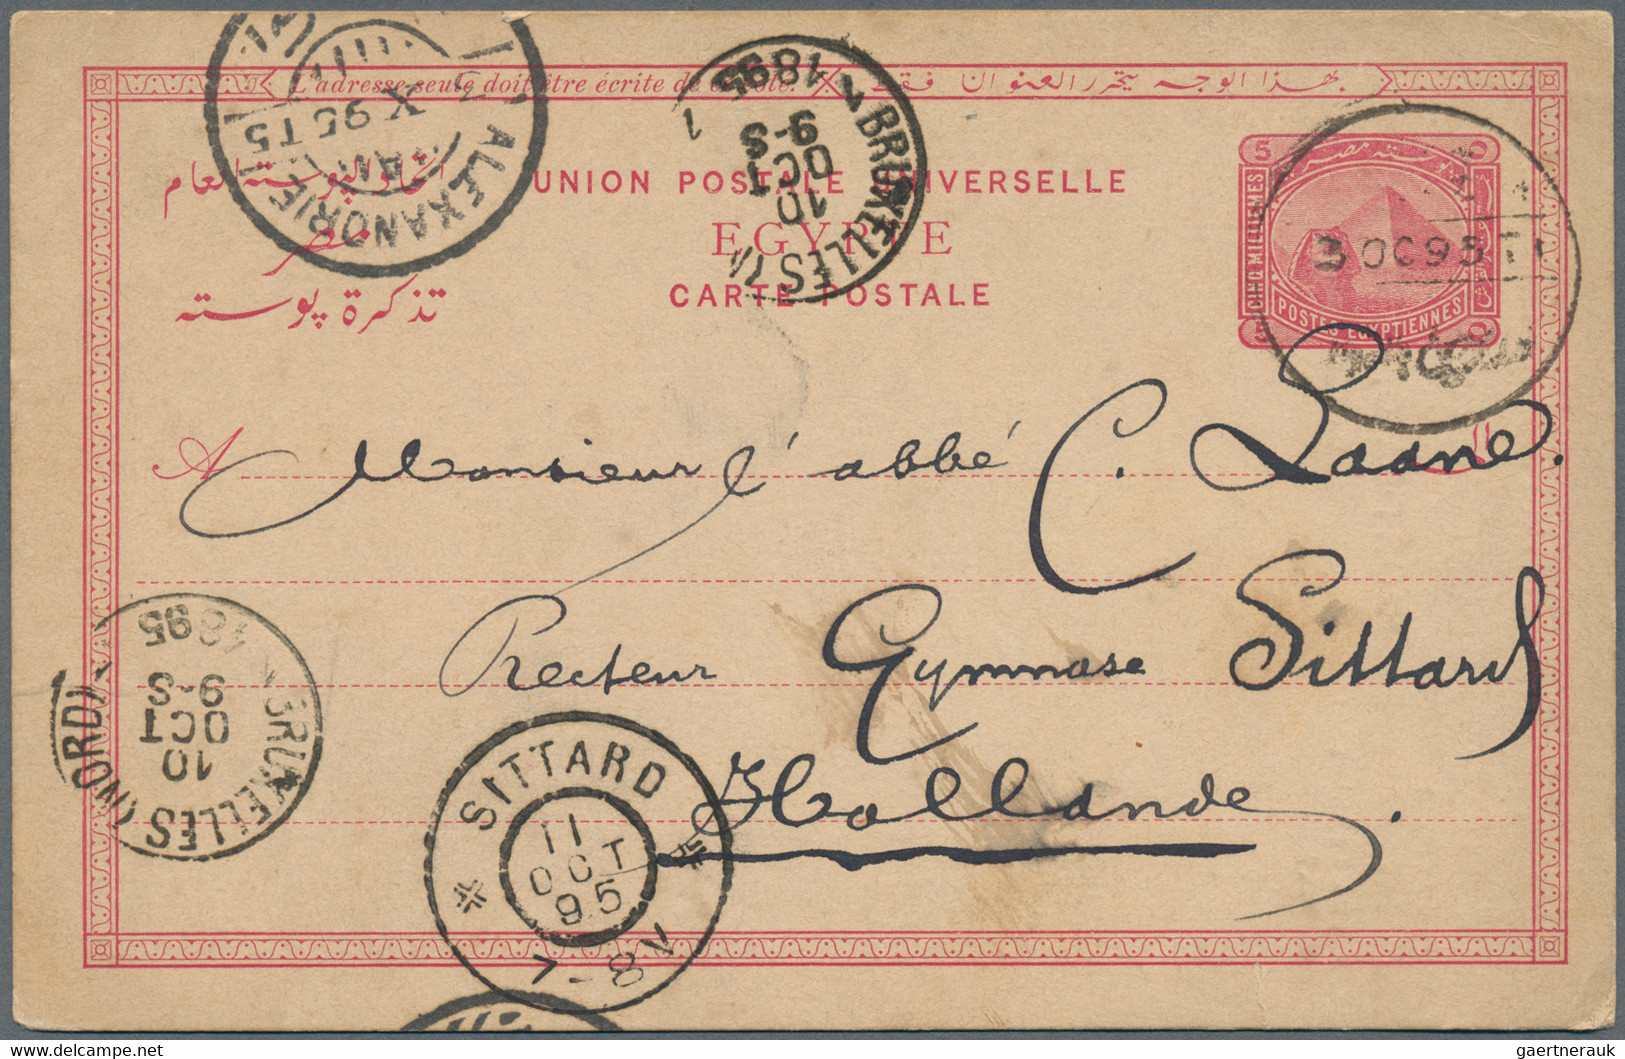 L'adresse seule doit être écrite de ce côté.
بهذا الوجه يتحرر العنوان فقط
اتحاد البوستة العام
UNION POSTALE UNIVERSELLE
مصر
EGYPTE
تذكرة پوسته
CARTE POSTALE
5
CINQ MILLIEMES
POSTES EGYPTIENNES
ALEXANDRIE
X 95 T5
AM
BRUXELLES (N
1895
9-S
OCT
10
1
3 OC 95 T1
A Monsieur l'abbé C. Laane.
Recteur Gymnase Sittard
Hollande.
BRUXELLES (NORD)
1895
9-S
OCT
10
SITTARD
11
OCT
95
7-8 V
www.delcampe.net
gaertnerauk